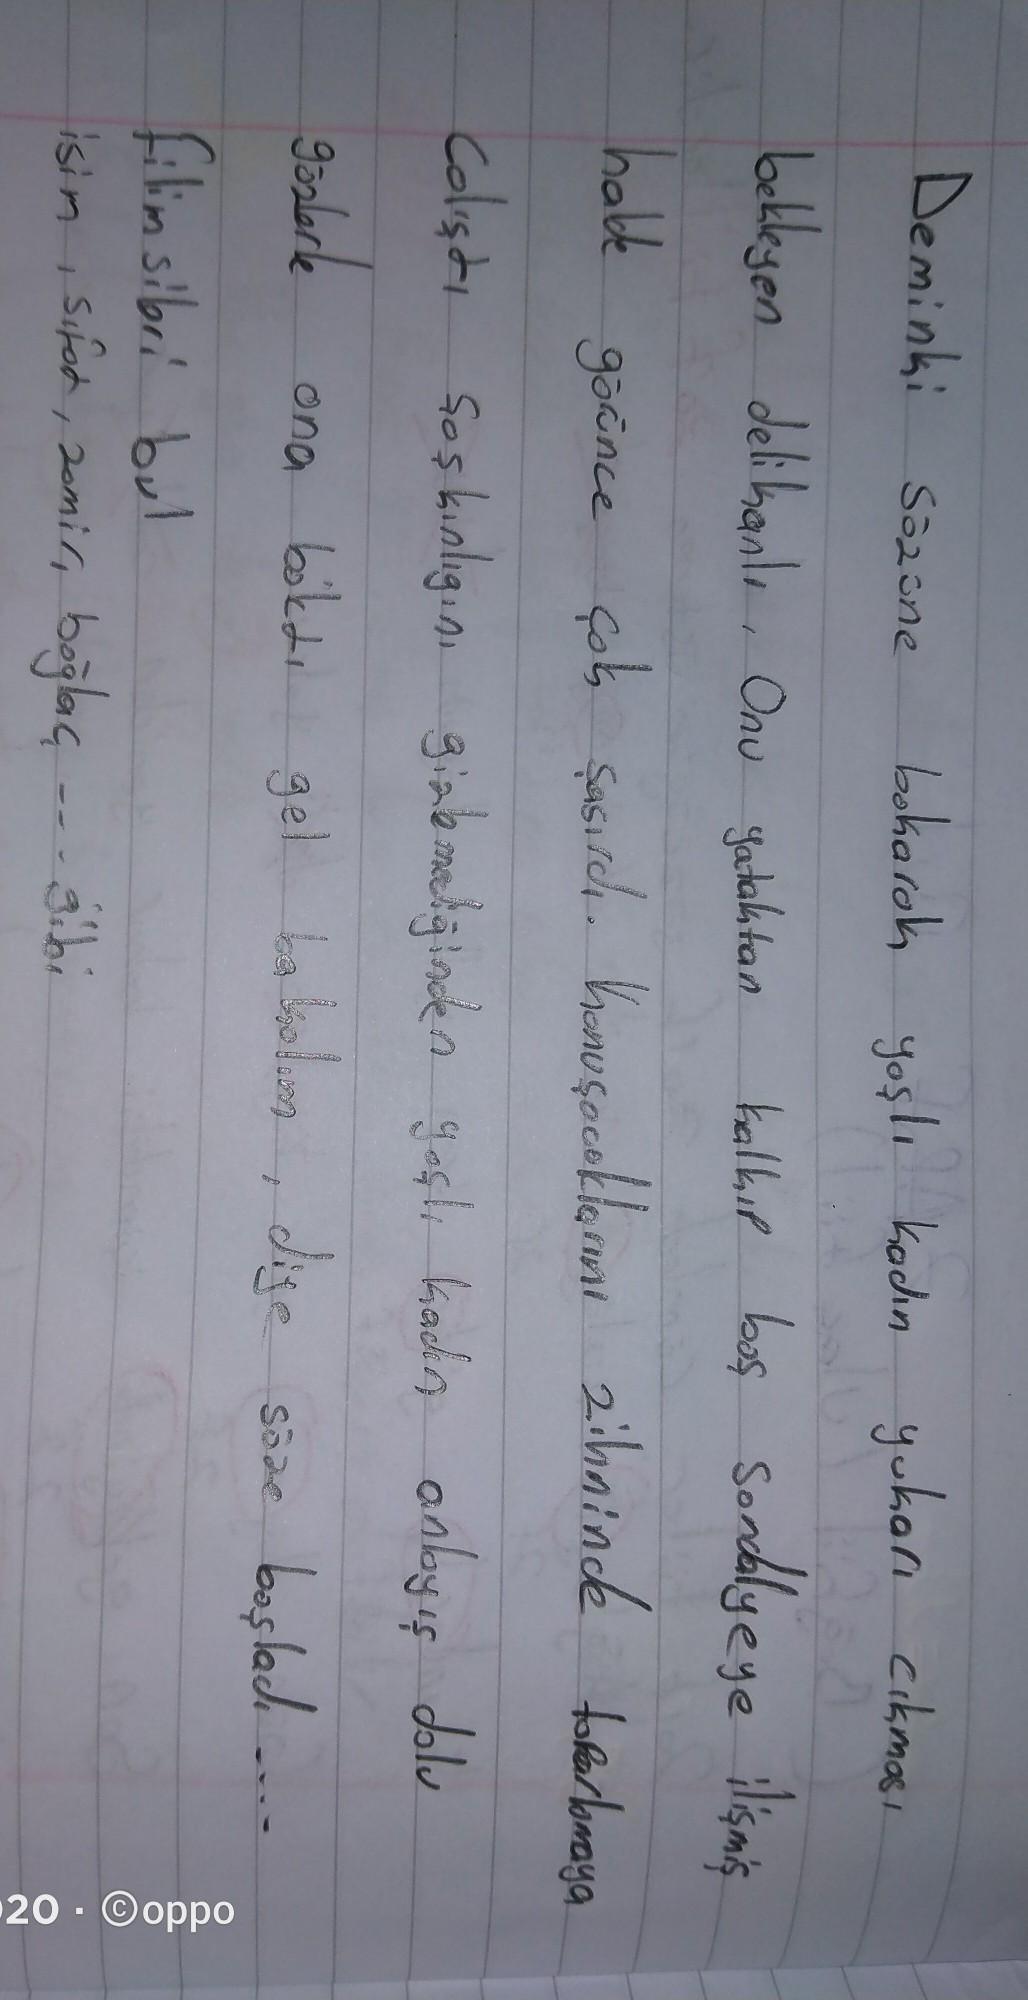 Deminki sözüne bakarak yaşlı kadın yukarı cıkması
bekleyen delikanlı, Onu yataktan kalkıp baş sandalyeye ilişmiş
halde görünce çok şaşırdı. konuşacaklarını zihninde toparlamaya
Calıştı şaşkınlıgını gizlemediğinden yaşlı kadın anlayış dolu
gözlerle ona baktı gel bakalım, diye söze başladı ....
filimsibri bul
isim, sıfat, zamir, bağlaç, ... gibi
20 · ©oppo